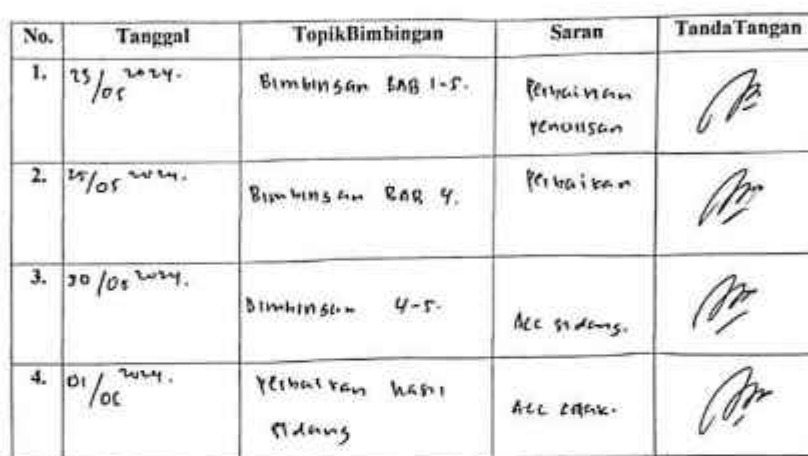 No. Tanggal TopikBimbingan Saran TandaTangan
1. 25/05 2024. Bimbingan BAB 1-5. Perbaikan
Penulisan
2. 25/05 2024. Bimbingan BAB 4. Perbaikan
3. 30/05 2024. Bimbingan 4-5. Acc sidang.
4. 01/06 2024. Perbaikan hasil
sidang Acc cetak.